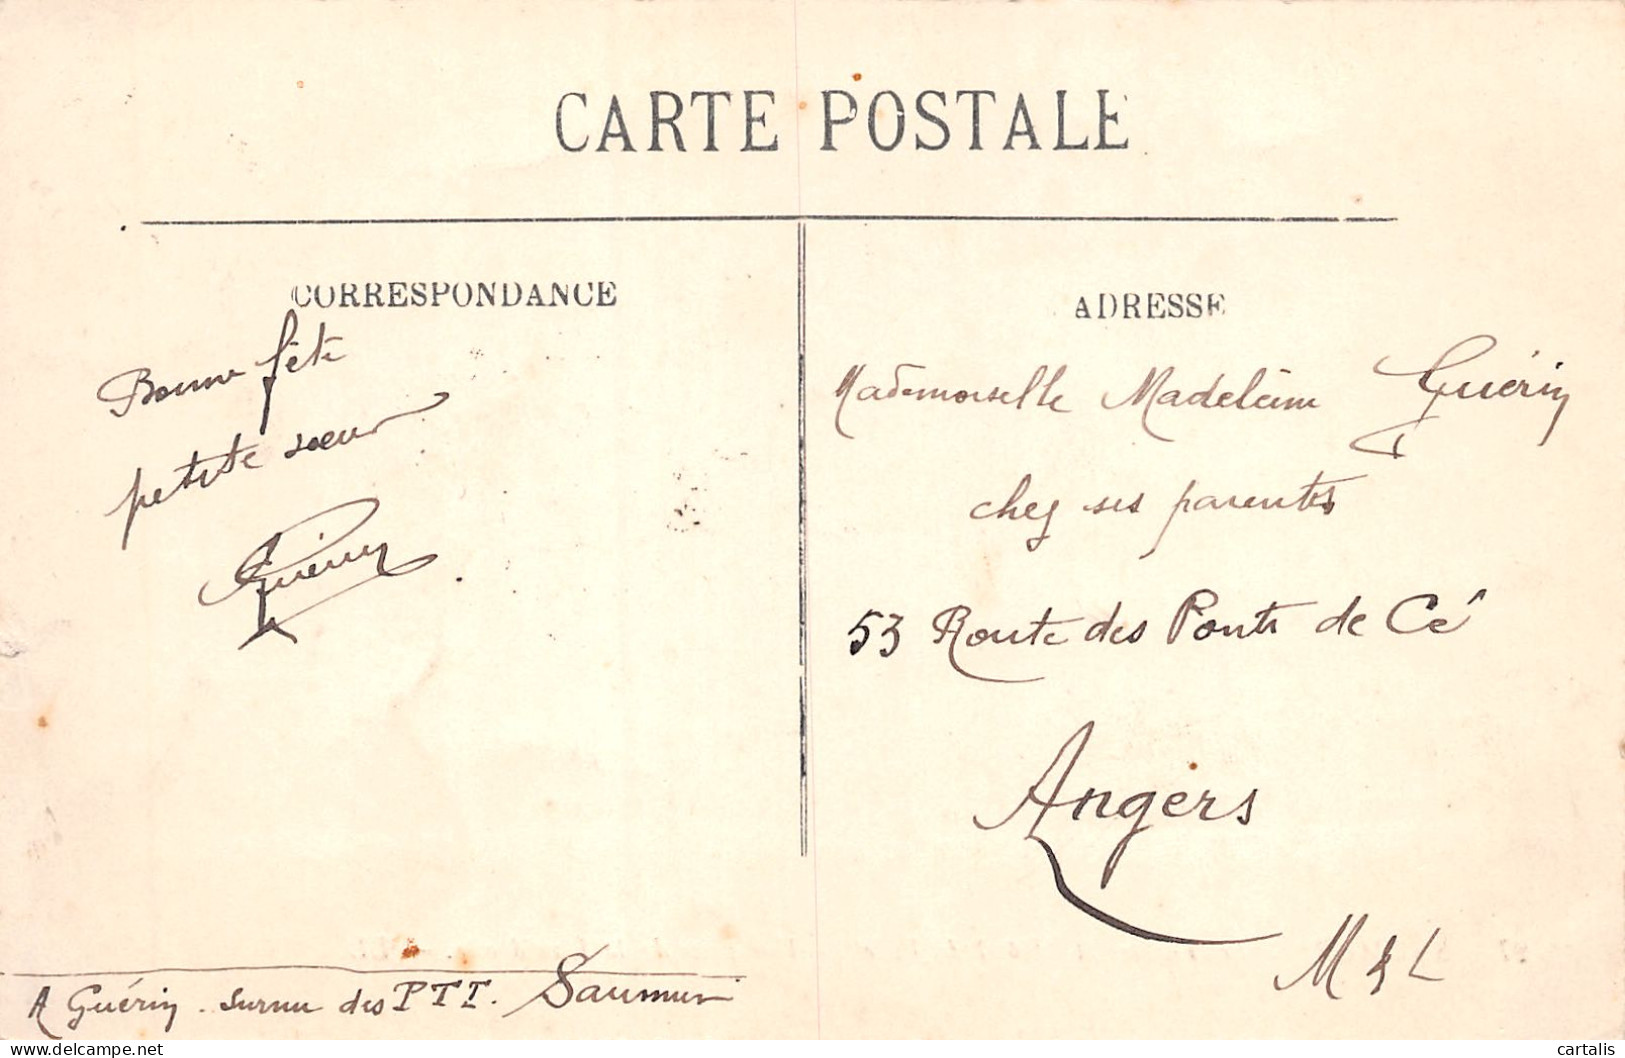 CARTE POSTALE
CORRESPONDANCE
Bonne fête
petite sœur
Guérin
ADRESSE
Mademoiselle Madeleine Guérin
chez ses parents
53 Route des Ponts de Cé
Angers
M & L
A Guérin . Surnu des PTT. Saumur
delcampe.net
cartalis